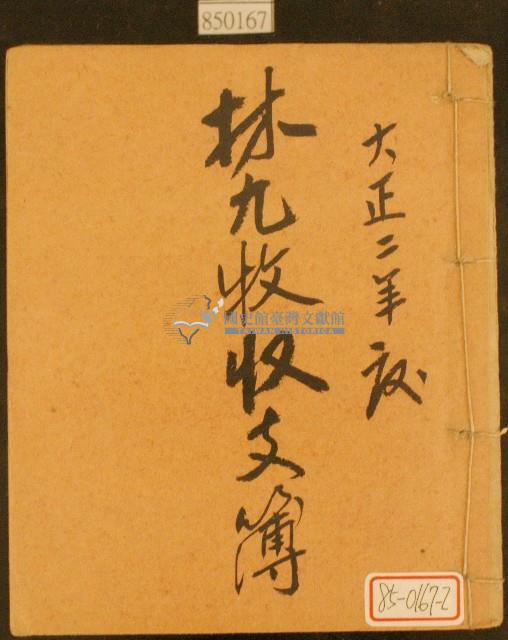 850167
大正二年設
林九牧收支簿
國史館臺灣文獻館
TAIWAN HISTORICA
85-0167-2